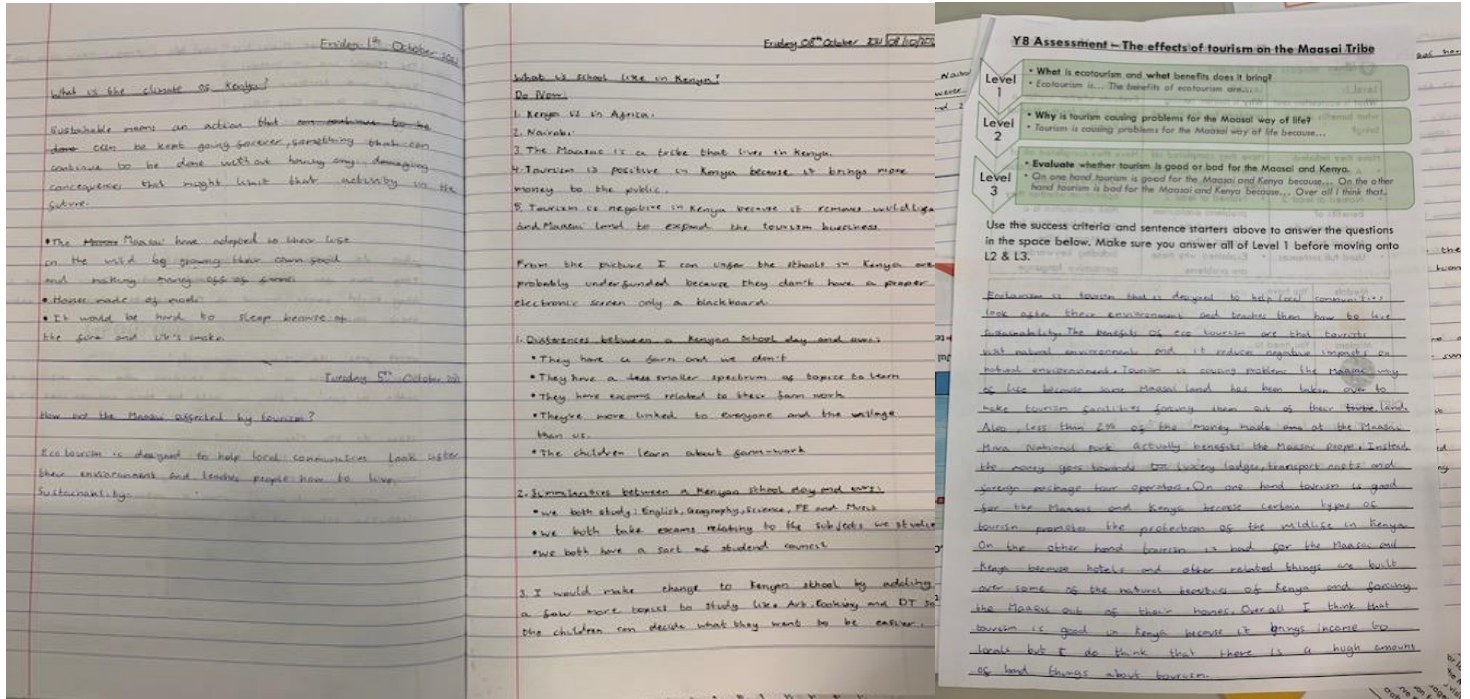 Friday 1st October 2021
What is the climate of Kenya?
Sustainable means an action that can continue to be
done can be kept going forever, something that can
continue to be done without having any damaging
conceqences that might limit that activity in the
future.
•The Maasai have adopted to their life
in the wild by growing their own food
and making money off of
•House made of mud
•It would be hard to sleep because of
the fire and it's smoke.
Tuesday 5th October 2021
How are the Maasai affected by tourism?
Ecotourism is designed to help local communities look after
their environment and teaches people how to live
Sustainability.
Friday 08th October
What is school like in Kenya?
Do Now:
1. Kenya is in Africa.
2. Nairobi
3. The Maasai is a tribe that lives in Kenya.
4. Tourism is positive in Kenya because it brings more
money to the public.
5. Tourism is negative in Kenya because it removes wildlife
and Maasai land to expand the tourism business.
From the picture I can infer the schools in Kenya are
probably underfunded because they don't have a proper
electronic screen only a blackboard.
1. Differences between a Kenyan School day and ours:
•They have a farm and we don't
•They have a smaller spectrum of topics to learn
•They have exams related to their farm work
•They're more linked to everyone and the village
than us.
•The children learn about farm-work
2. Simmilarities between a Kenyan school day and ours:
•we both study: English, Geography, Science, PE and Music
•we both take exams relating to the subjects we studied
•we both have a sort of student council
3. I would make change to Kenyan school by adding
a few more topics to study like Art, Cooking and DT so
the children can decide what they want to be easier.
Y8 Assessment – The effects of tourism on the Maasai Tribe
Level 1
• What is ecotourism and what benefits does it bring?
• Ecotourism is... The benefits of ecotourism are...
Level 2
• Why is tourism causing problems for the Maasai way of life?
• Tourism is causing problems for the Maasai way of life because...
Level 3
• Evaluate whether tourism is good or bad for the Maasai and Kenya.
• On one hand tourism is good for the Maasai and Kenya because... On the other
hand tourism is bad for the Maasai and Kenya because... Over all I think that.
Use the success criteria and sentence starters above to answer the questions
in the space below. Make sure you answer all of Level 1 before moving onto
L2 & L3.
Ecotourism is tourism that is designed to help local communities
look after their environment and teaches them how to live
sustainability. The benefits of eco tourism are that tourists
visit natural environment and it reduces negative impacts on
natural environment. Tourism is causing problems the Maasai way
of life because some Maasai land has been taken over to
make tourism facilities forcing them out of their land.
Also, less than 2% of the money made at the Maasai
Mara National park actually benefits the Maasai people. Instead
the money goes towards luxery lodges, transport costs and
foreign package tour operators. On one hand tourism is good
for the Maasai and Kenya because certain types of
tourism promotes the protection of the wildlife in Kenya
On the other hand tourism is bad for the Maasai and
Kenya because hotels and other related things are built
over some of the natural beauties of Kenya and forcing
the Maasai out of their homes. Overall I think that
tourism is good in Kenya because it brings income to
locals but I do think that there is a hugh amount
of bad things about tourism.